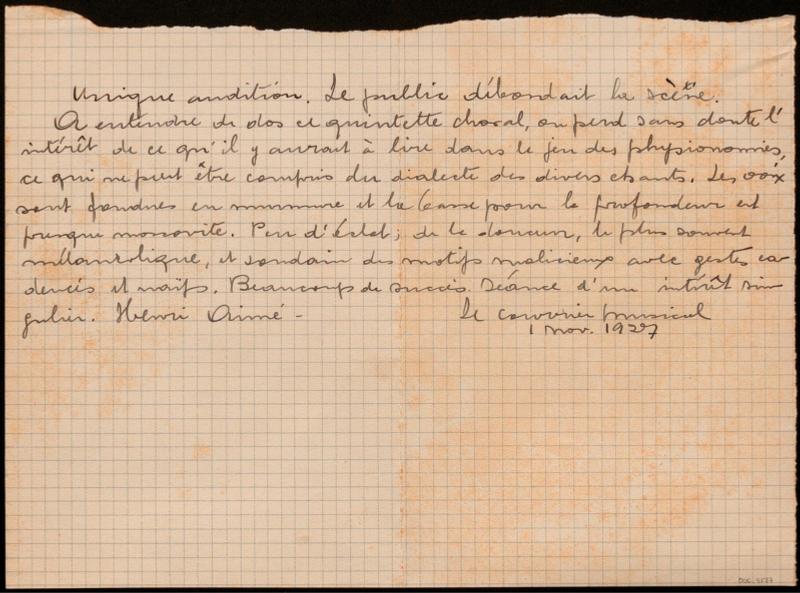 Unique audition. Le public débordait la scène.
A entendre de dos ce quintette choral, on perd sans doute l'
intérêt de ce qu'il y aurait à lire dans le jeu des physionomies,
ce qui ne peut être compris du dialecte des divers chants. Les voix
sont fondues en murmure et la basse pour la profondeur est
presque moscovite. Peu d'éclat; de la douceur, le plus souvent
mélancolique, et soudain des motifs malicieux avec gestes ca-
dencés et naïfs. Beaucoup de succès. Séance d'un intérêt sin
gulier. Henri Aimé -
Le courrier musical
1 nov. 1927
DOC. 3577